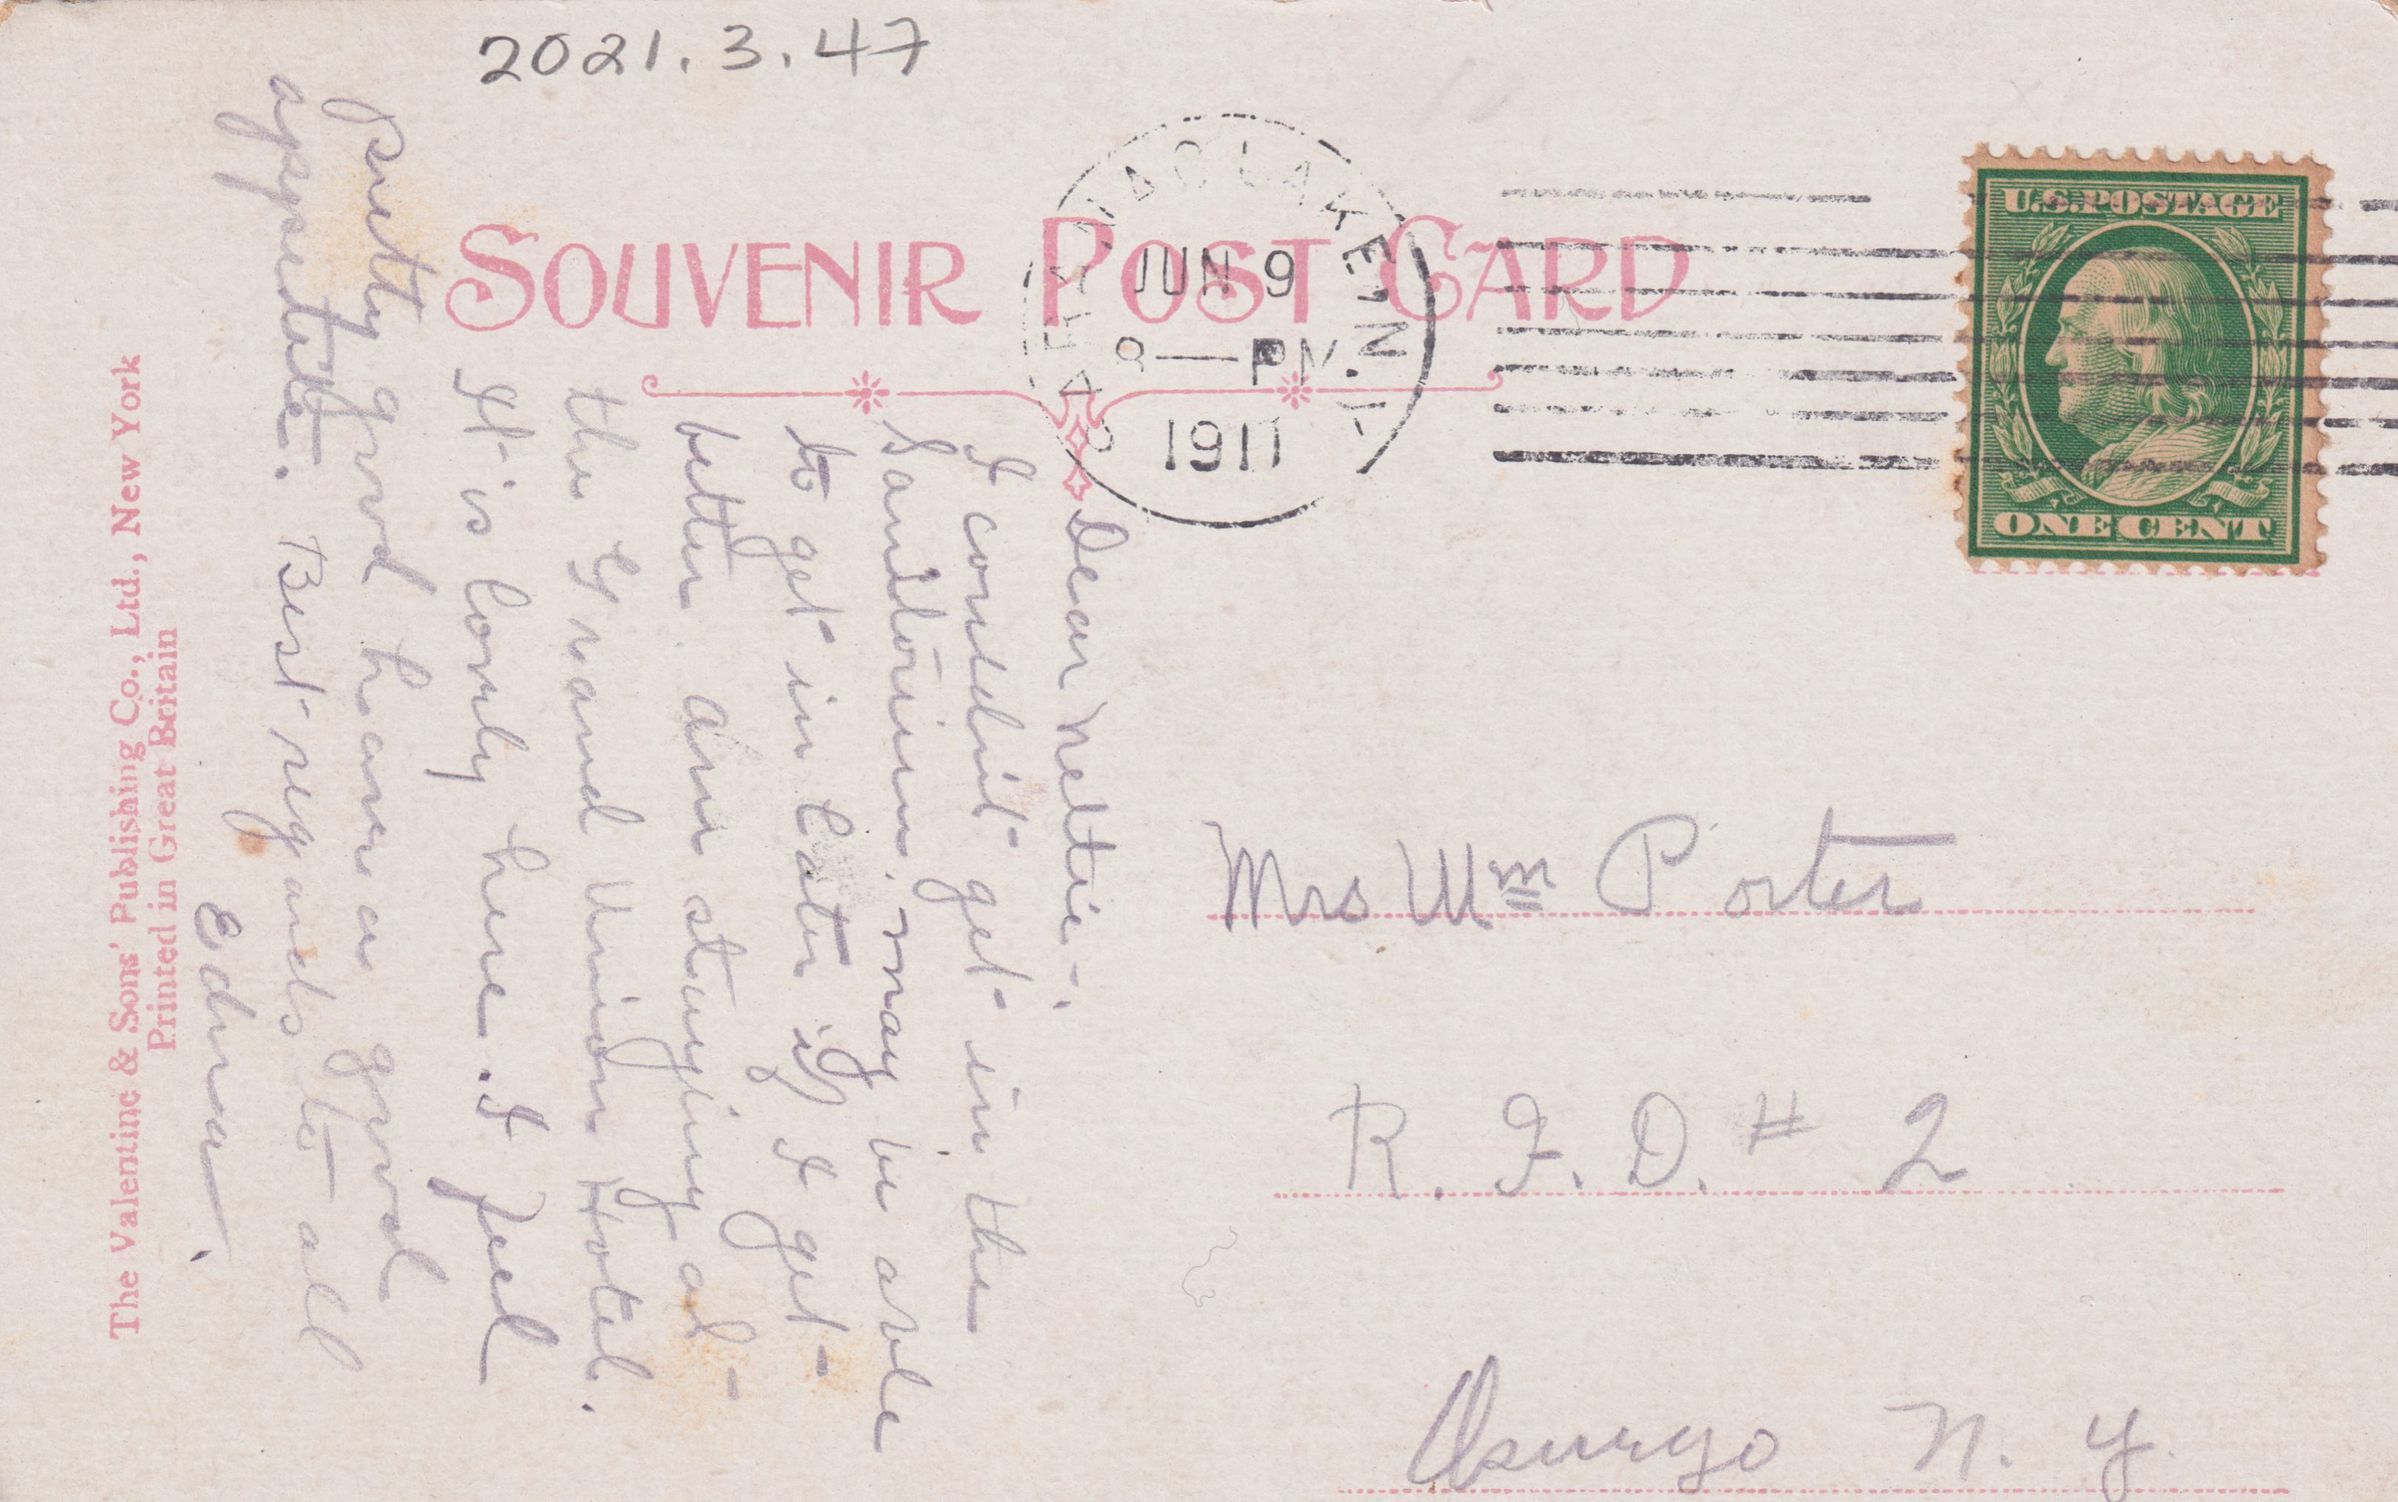 2021.3.47
SOUVENIR POST CARD
SARANAC LAKE, N.Y.
JUN 9
8—PM
1911
U.S. POSTAGE
ONE CENT
Dear Nettie-,
I couldnt get in the
Sanitorium, may be able
to get in later if I get
better am staying at
the Grand Union Hotel.
It is lonly here. I feel
pretty good have a good
appetite. Best regards to all
Edna.
Mrs Wm Porter
R. F. D. # 2
Oswego N. Y.
The Valentine & Sons' Publishing Co., Ltd., New York
Printed in Great Britain